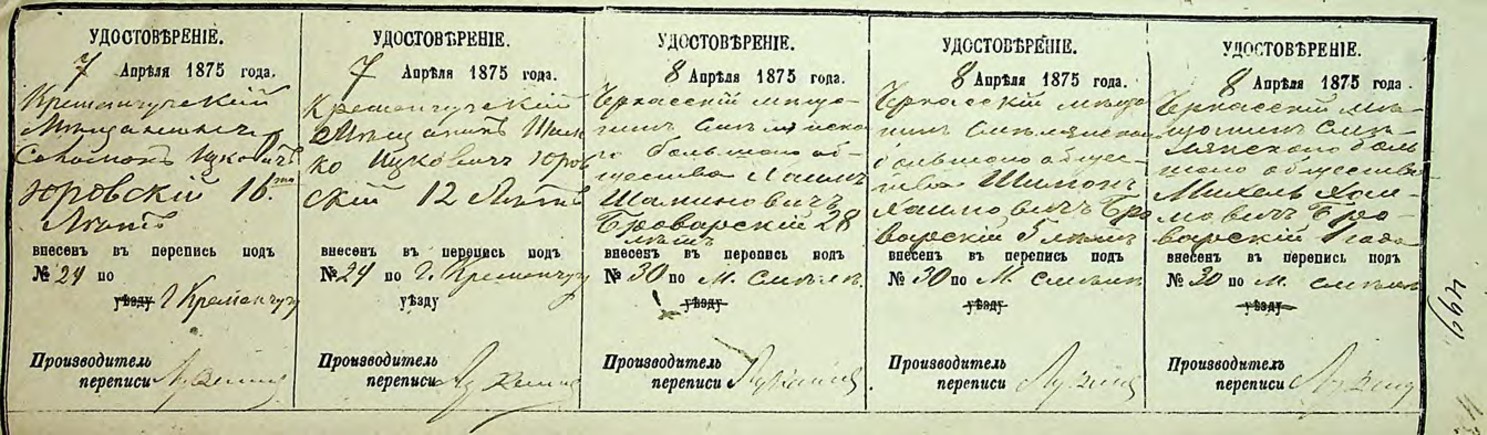 УДОСТОВѢРЕНІЕ.
7 Апрѣля 1875 года.
Кременчугскій
Мѣщанинъ
Соломонъ Ицковичъ
Юровскій 16.
Лѣтъ
внесенъ въ перепись подъ
№ 24 по
уѣзду г Кременчугу
Производитель
переписи
УДОСТОВѢРЕНІЕ.
7 Апрѣля 1875 года.
Кременчугскій
Мѣщанинъ
ко Ицковичъ Юров
скій 12 Лѣтъ
внесенъ въ перепись подъ
№ 24 по г. Кременчугу
уѣзду
Производитель
переписи
УДОСТОВѢРЕНІЕ.
8 Апрѣля 1875 года.
Черкасскій мѣща-
нинъ Смѣлянска
го большого об-
щества Хаимъ
Шаминовичъ
Броварскій 28
лѣтъ
внесенъ въ перепись подъ
№ 30 по М. Смѣлѣ
уѣзду
Производитель
переписи
УДОСТОВѢРЕНІЕ.
8 Апрѣля 1875 года.
Черкасскій мѣща
нинъ Смѣлянскаго
большого общес-
тва Шимонъ
Хаимовичъ Бро
варскій 5 лѣтъ
внесенъ въ перепись подъ
№ 30 по М. Смѣлѣ
уѣзду
Производитель
переписи
УДОСТОВѢРЕНІЕ.
8 Апрѣля 1875 года.
Черкасскій мѣ-
щанинъ Смѣ-
лянского боль
шого общества
Михель Хаи-
мовичъ Бро-
варскій 1 года
внесенъ въ перепись подъ
№ 30 по М. Смѣлѣ
уѣзду
Производитель
переписи